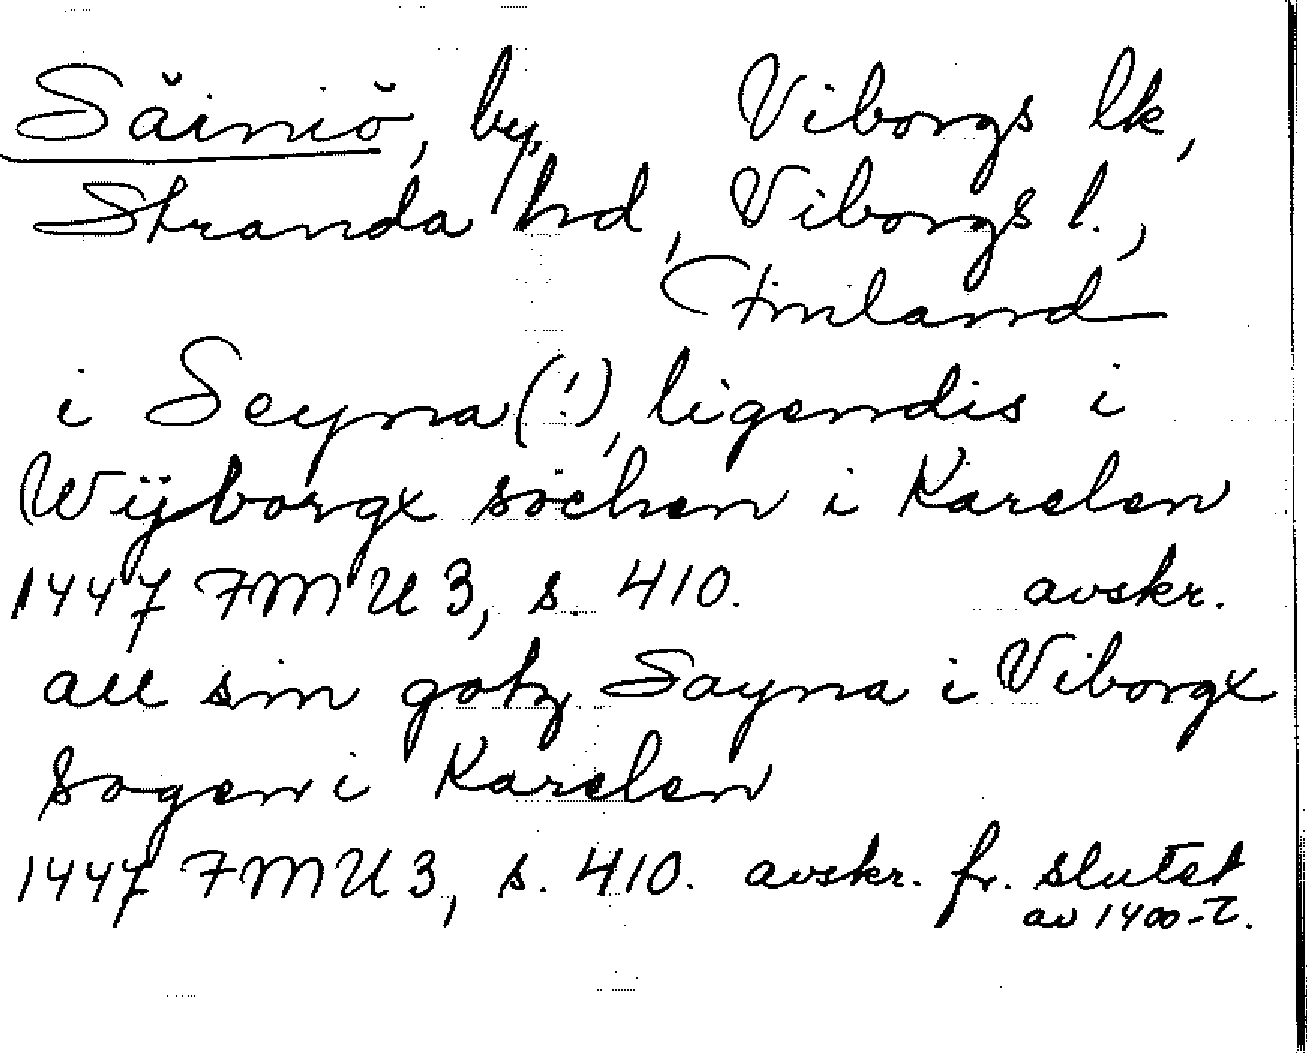 Säiniö, by, Viborgs lk,
Stranda hd, Viborgs l.,
Finland
i Seyna(!), ligendis i
Wÿborgx sochen i Karelen
1447 FMU 3, s. 410. avskr.
all sin gotz Sayna i Viborgx
sogen i Karelen
1447 FMU 3, s. 410. avskr. fr. slutet
av 1400-t.